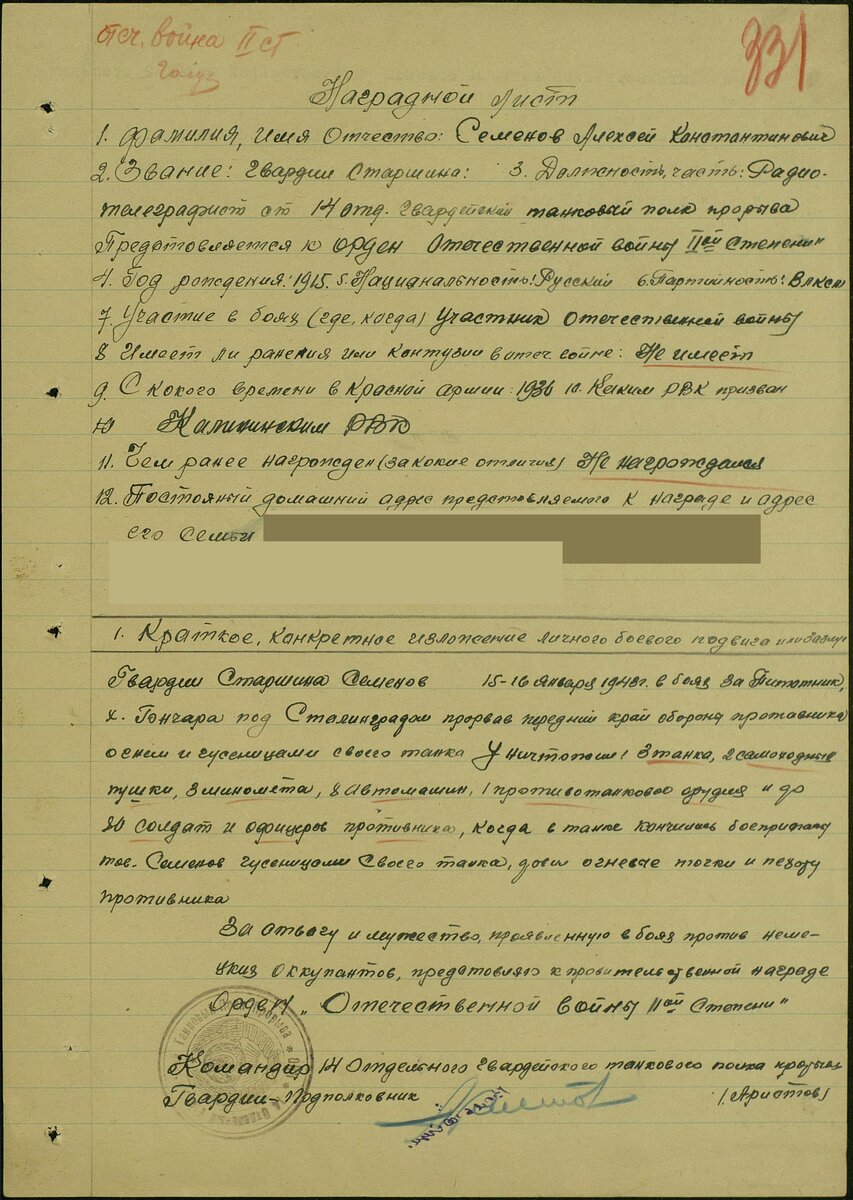 отеч. война II ст.
331
Наградной лист
1. Фамилия, имя Отчество: Семенов Алексей Константинович
2. Звание: Гвардии Старшина: 3. Должность, часть: Радио-
телеграфист ст 14 отд. Гвардейский танковый полк прорыва
Предствовляется к орден Отечественной войны II ой Степени"
4. Год рождения: 1915. 5. Национальность: Русский 6. Партийность: ВЛКСМ
7. Участие в боях (где, когда) Участник Отечественной войны
8 Имеет ли ранения или контузии в отеч войне: Не имеет
9. С какого времени в Красной армии: 1936 10. Каким РВК призван
10 Калининским РВК
11. Чем ранее награжден (за какие отличия) Не награждался
12. Постояный домашний адрес предстовляемого к награде и адрес
его семьи
1. Краткое, конкретное изложение личного боевого подвига или заслуг
Гвардии Старшина Семенов 15-16 января 1943 г. в боях за Питомник,
х. Гончара под Сталинградом прорвав передний край обороны противника
огнем и гусеницами своего танка Уничтожил: 3 танка, 2 самоходные
пушки, 3 миномета, 8 автомашин, 1 противотанковое орудия и до
80 солдат и офицеров противника, когда в танке кончились боеприпасы
тов. Семенов гусеницами своего танка, давил огневые точки и пехоту
противника
За отвагу и мужество, проявленную в боях против неме-
цких оккупантов, предстовляю к правительственной награде
Орден „Отечественной войны II ой Степени"
Командир 14 Отдельного Гвардейского танкового полка прорыва
Гвардии-Подполковник (Аристов)